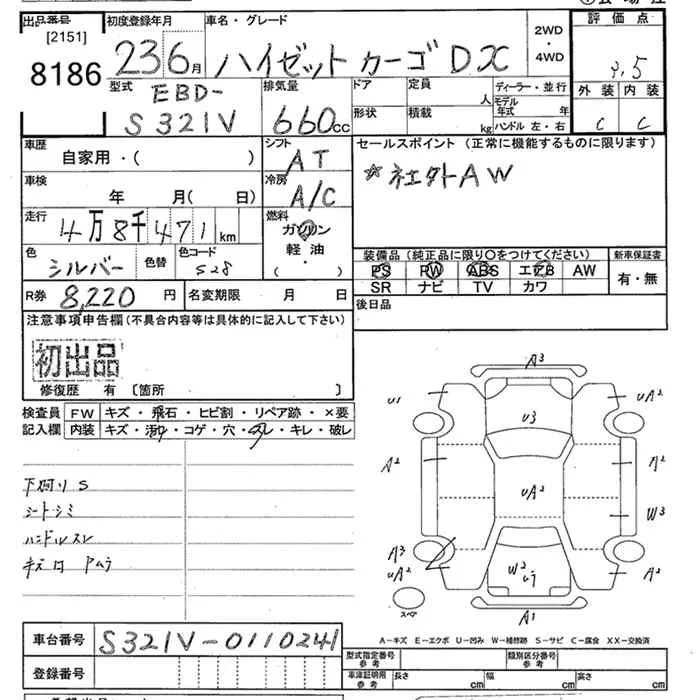 出品番号 初度登録年月 車名・グレード 2WD・4WD 評価点
[2151]
8186 23 6月 ハイゼット カーゴ DX 3.5
型式 排気量 ドア 定員 人 ディーラー・並行 外装 内装
EBD- 形状 積載 kg モデル年式 年
S321V 660cc ハンドル 左・右 C C
車歴 シフト セールスポイント (正常に機能するものに限ります)
自家用・( ) AT ☆社外AW
車検 冷房
年 月( 日) A/C
走行 燃料
4万8千471km ガソリン
軽油
・( )
色 色替 色コード 装備品 (純正品に限り○をつけてください) 新車保証書
シルバー S28 PS PW ABS エアB AW 有・無
R券 8,220円 名変期限 月 日 SR ナビ TV カワ
注意事項申告欄(不具合内容等は具体的に記入して下さい) 後日品
初出品
修復歴 有 〔箇所 〕
検査員 FW キズ・飛石・ヒビ割・リペア跡・×要
記入欄 内装 キズ・汚れ・コゲ・穴・スレ・キレ・破レ
下廻りS
シートシミ
ハンドルスレ
A3
U1 UA2
U3
A2 UA2 A2
W3
A3
UA2 W2 A2
スペア A1
A-キズ E-エクボ U-凹み W-補修跡 S-サビ C-腐食 XX-交換済
車台番号 S321V-0110241
型式指定番号 参考 類別区分番号 参考
登録番号 車庫証明用 参考 長さ cm 幅 cm 高さ cm